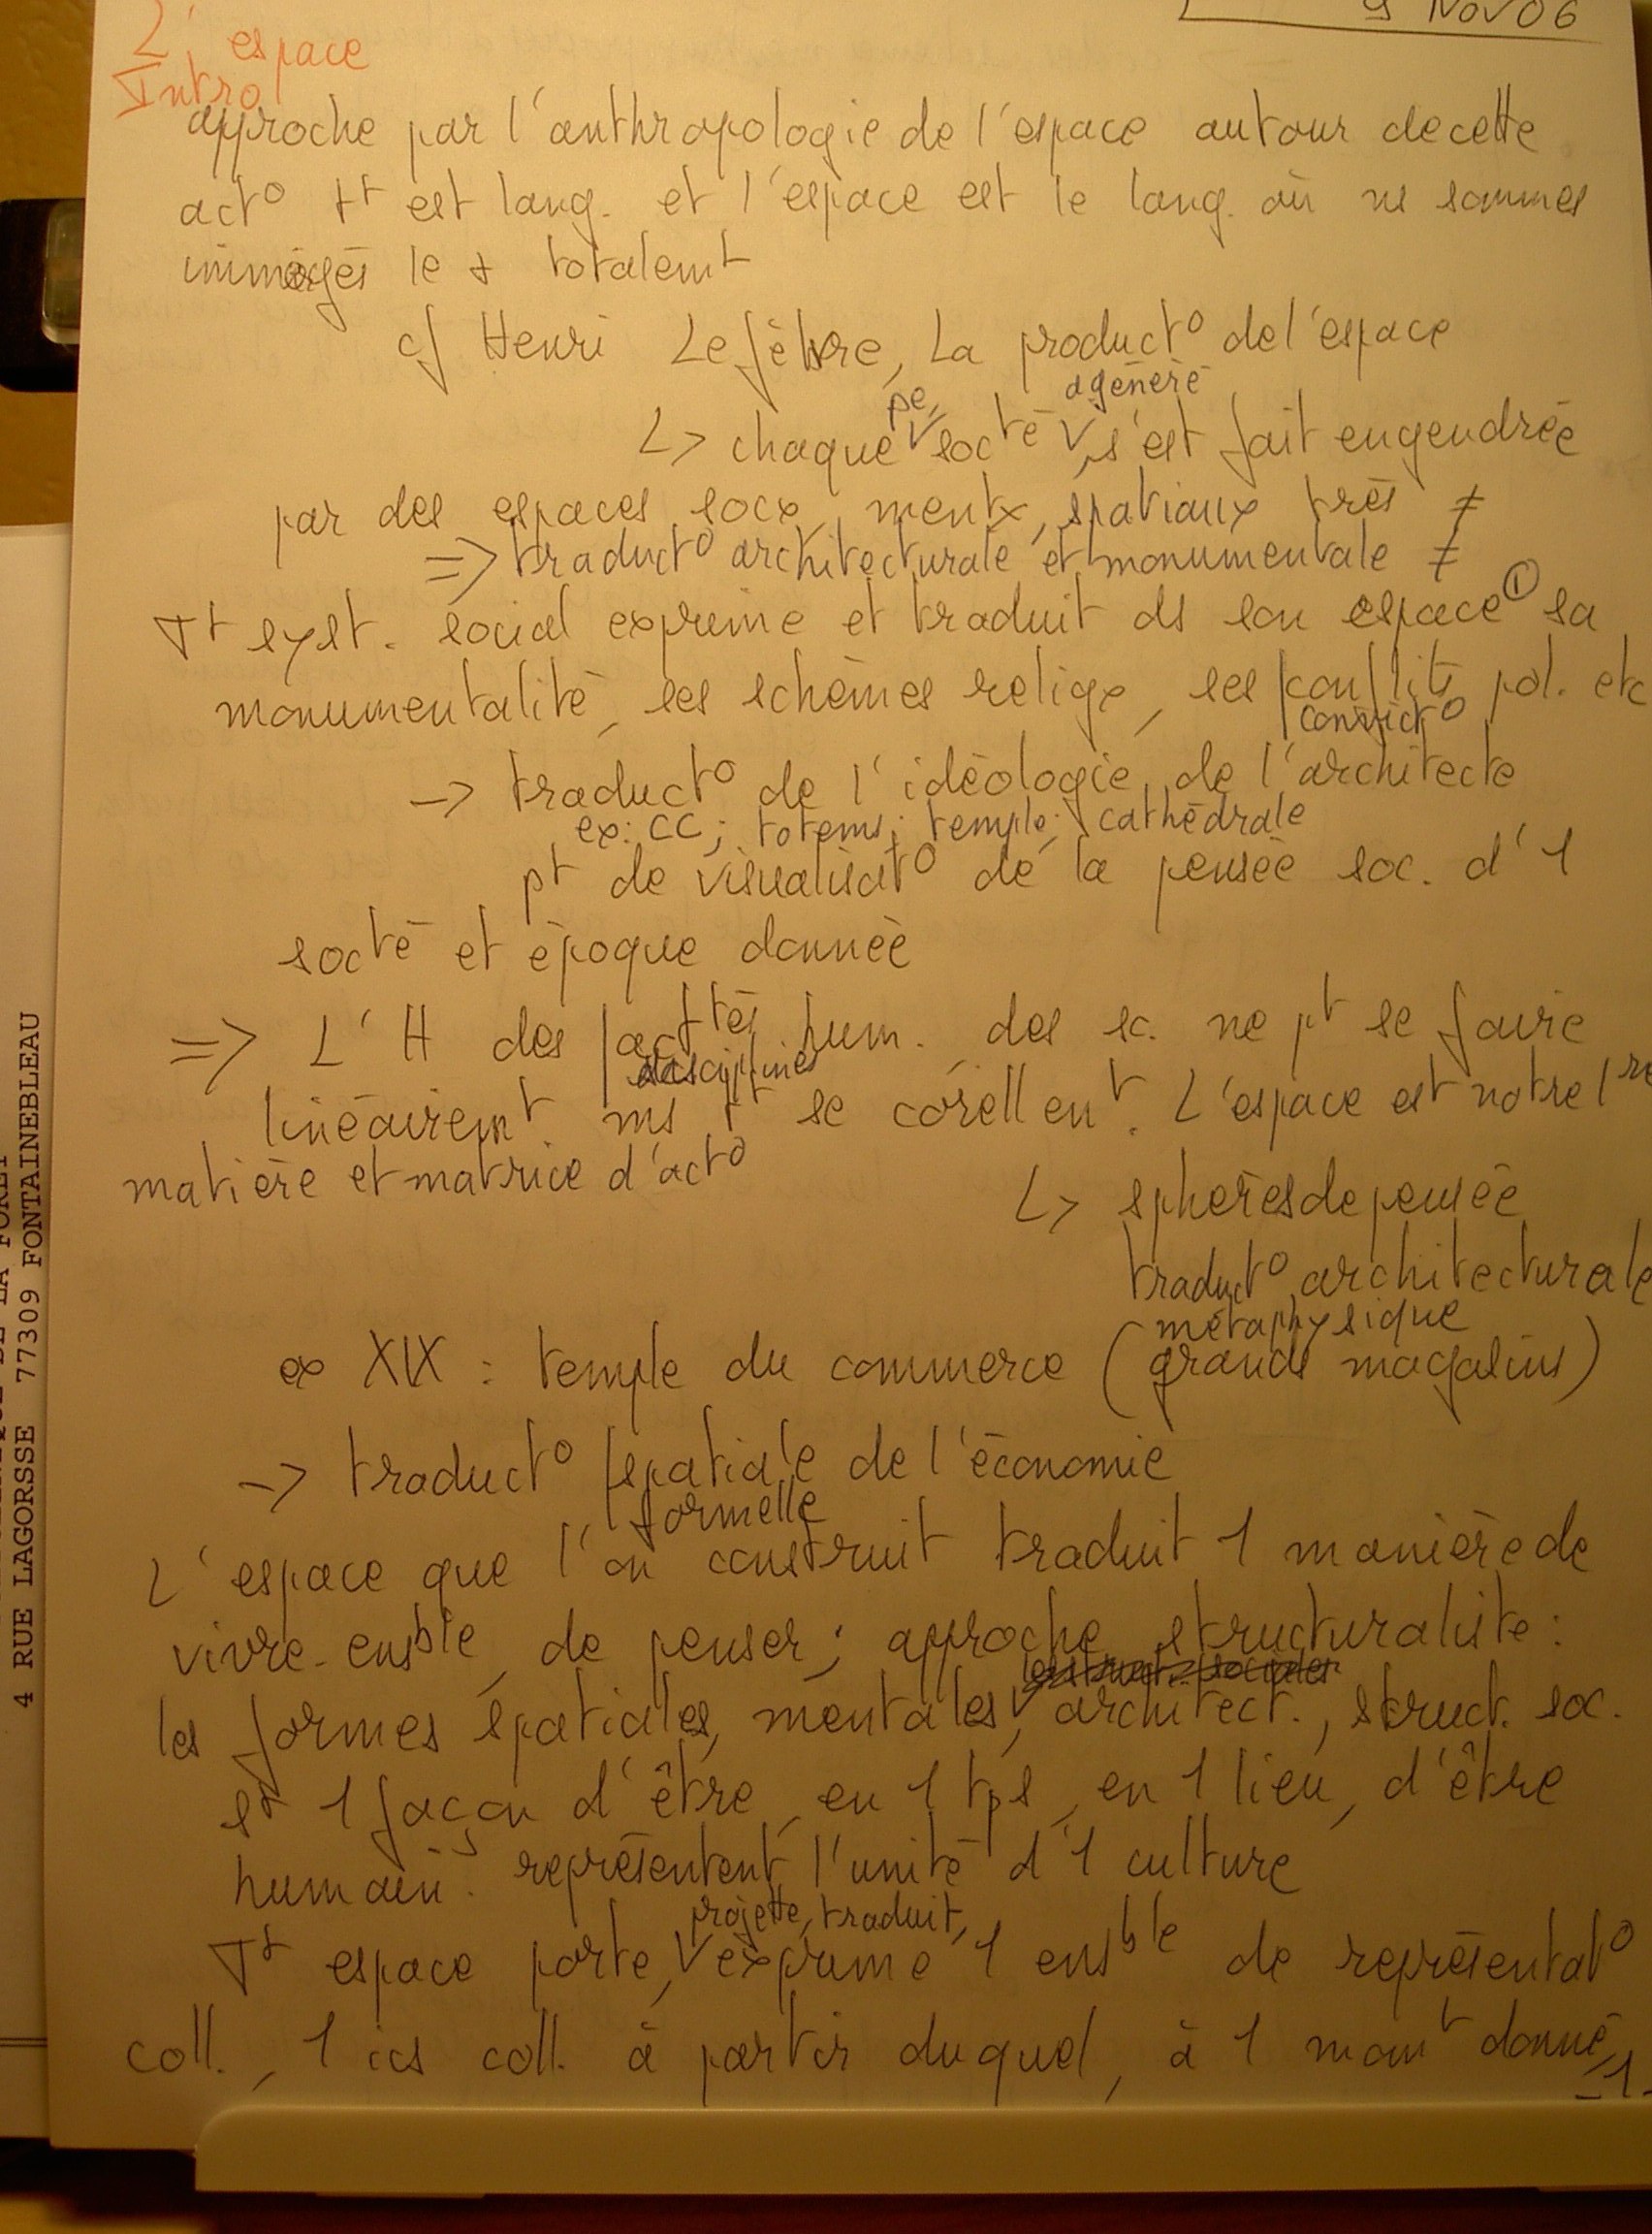 9 Nov 06
L'espace
Intro
approche par l'anthropologie de l'espace autour de cette
act° tt est lang. et l'espace est le lang. où ns sommes
immergés le + totalemt
cf Henri Lefèbvre, La product° de l'espace
pe, a généré
↳ chaque V socté V, s'est fait engendrée
par des espaces socx, mentx, spatiaux très ≠
=> traduct° architecturale et monumentale ≠
Tt syst. social exprime et traduit ds son espace ① sa
monumentalité, ses schèmes religx, ses conflits pol. etc
convict°
-> traduct° de l'idéologie, de l'architecte
ex: CC; totems; temple; cathédrale
pt de visualisat° de la pensée soc. d'1
socté et époque donnée
=> L'H des acttés hum., des sc. ne pt se faire
disciplines
linéairemt. ms tt se corellent. L'espace est notre 1re
matière et matrice d'act°
↳ sphères de pensée
traduct° architecturale
métaphysique
ex XIX : temple du commerce (grands magasins)
-> traduct° spatiale de l'économie
formelle
L'espace que l'on construit traduit 1 manière de
vivre-ensble, de penser; approche structuraliste:
les formes spatiales, mentales, V architect., struct. soc.
st 1 façon d'être, en 1 tps, en 1 lieu, d'être
humain. représentent l'unité d'1 culture
projette, traduit,
Tt espace porte, V exprime 1 ensble de représentat°
coll., 1 ics coll. à partir duquel, à 1 momt donné,
-1-
4 RUE LAGORSSE 77309 FONTAINEBLEAU